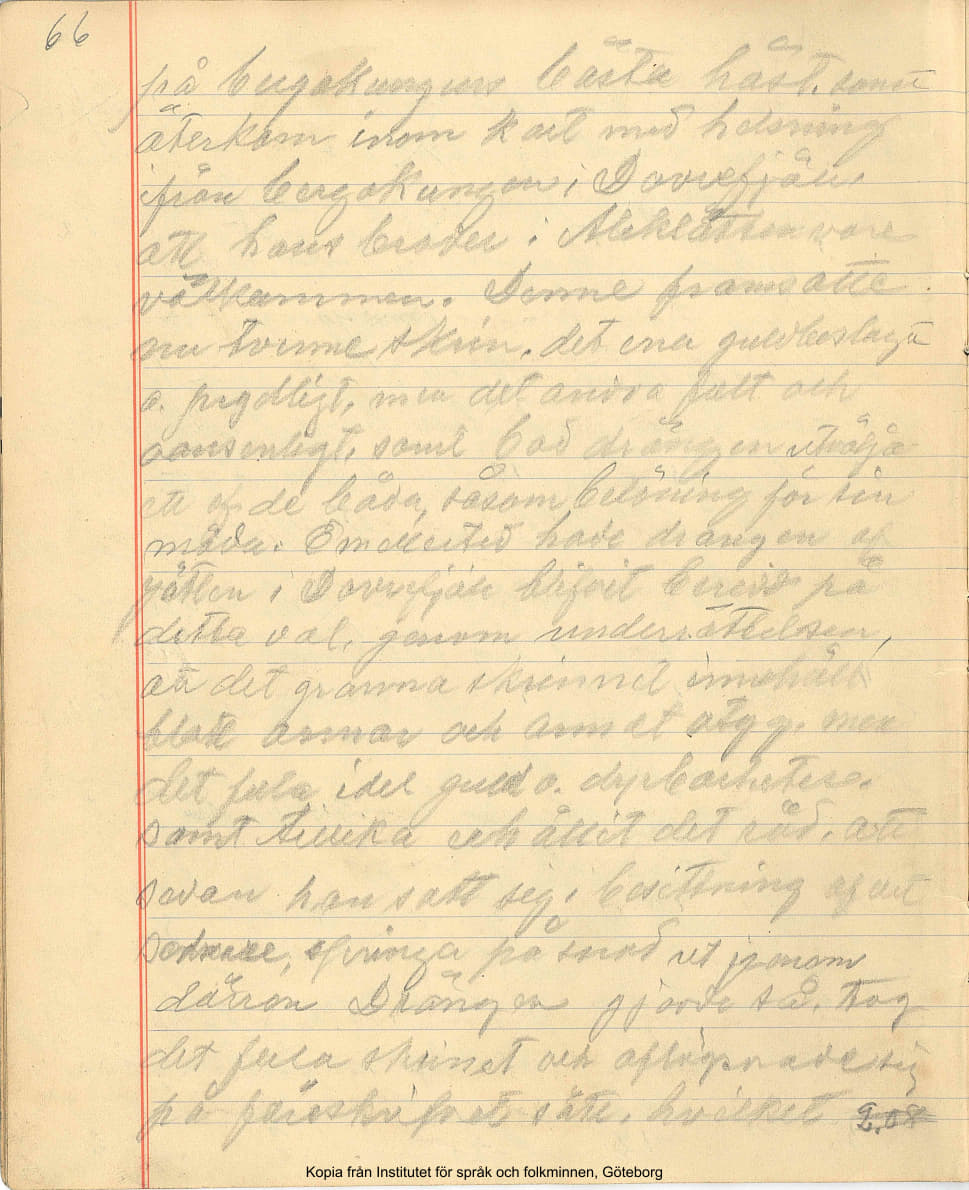 66
på bergakungens bästa häst, som
återkom inom kort med helsning
ifrån bergakungen i Dovrefjäll,
att hans broder i Aleklätten vore
välkommen. Denne framsatte
nu tvenne skrin, det ena guldbeslaget
o. prydligt, men det andra fult och
oansenligt, samt bad drängen utvälja
ett af de båda, såsom belöning för sin
möda. Emellertid hade drängen af
jätten i Dovrefjäll blifvit beredd på
detta val, genom underrättelsen,
att det granna skrinnet innehöll
blott ormar och annat otyg, men
det fula idel guld o. dyrbarheter.
samt tillika erhållit det råd, att
sedan han satt sig i besittning af det
senare, springa på snod ut genom
dörren Drängen gjorde så, tog
det fula skrinet och aflägsnade sig
på föreskrifvet sätt, hvilket
Kopia från Institutet för språk och folkminnen, Göteborg